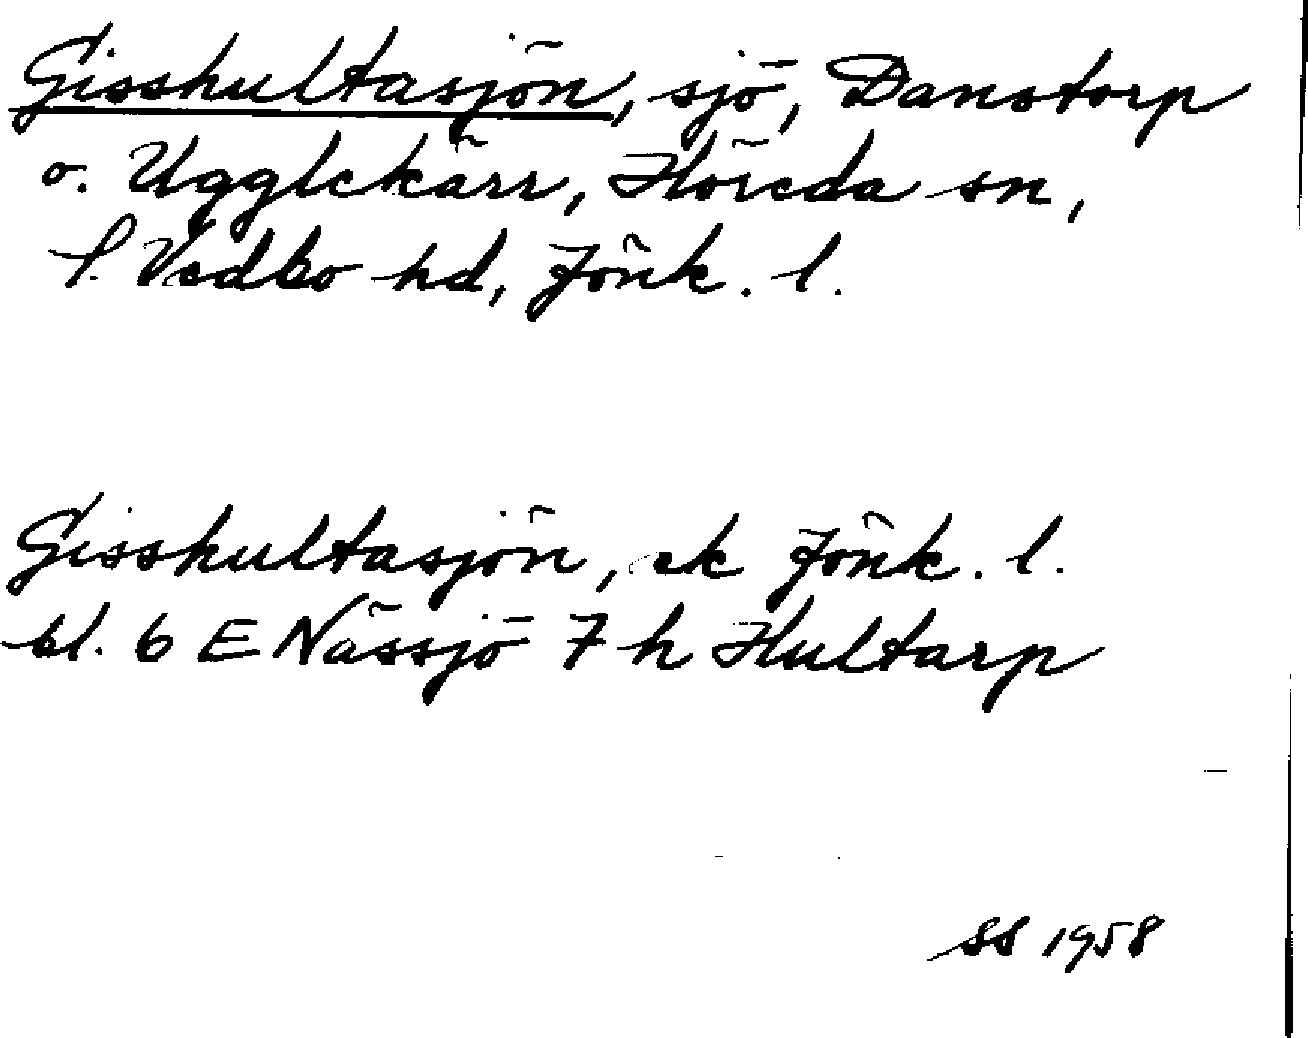 Gisshultasjön, sjö, Danstorp
o. Ugglekärr, Höreda sn,
S. Vedbo hd, Jönk. l.
Gisshultasjön, ek Jönk. l.
bl. 6 E Nässjö 7 h Hultarp
SS 1958